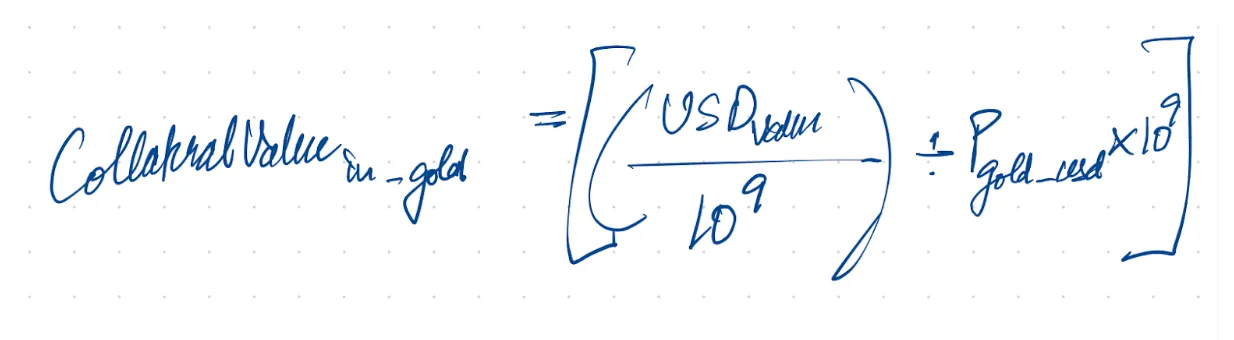 CollateralValue_in_gold = [(USD_value / 10^9) ÷ P_gold_usd × 10^9]